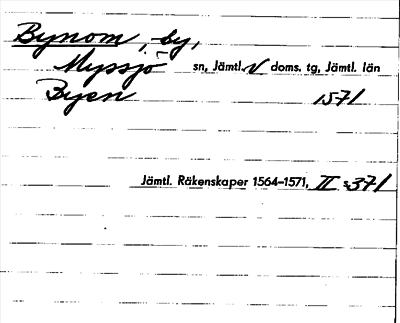 Bynom, by,
Myssjö sn, Jämtl. V doms. tg, Jämtl. län
Byen 1571
Jämtl. Räkenskaper 1564-1571, II s. 371